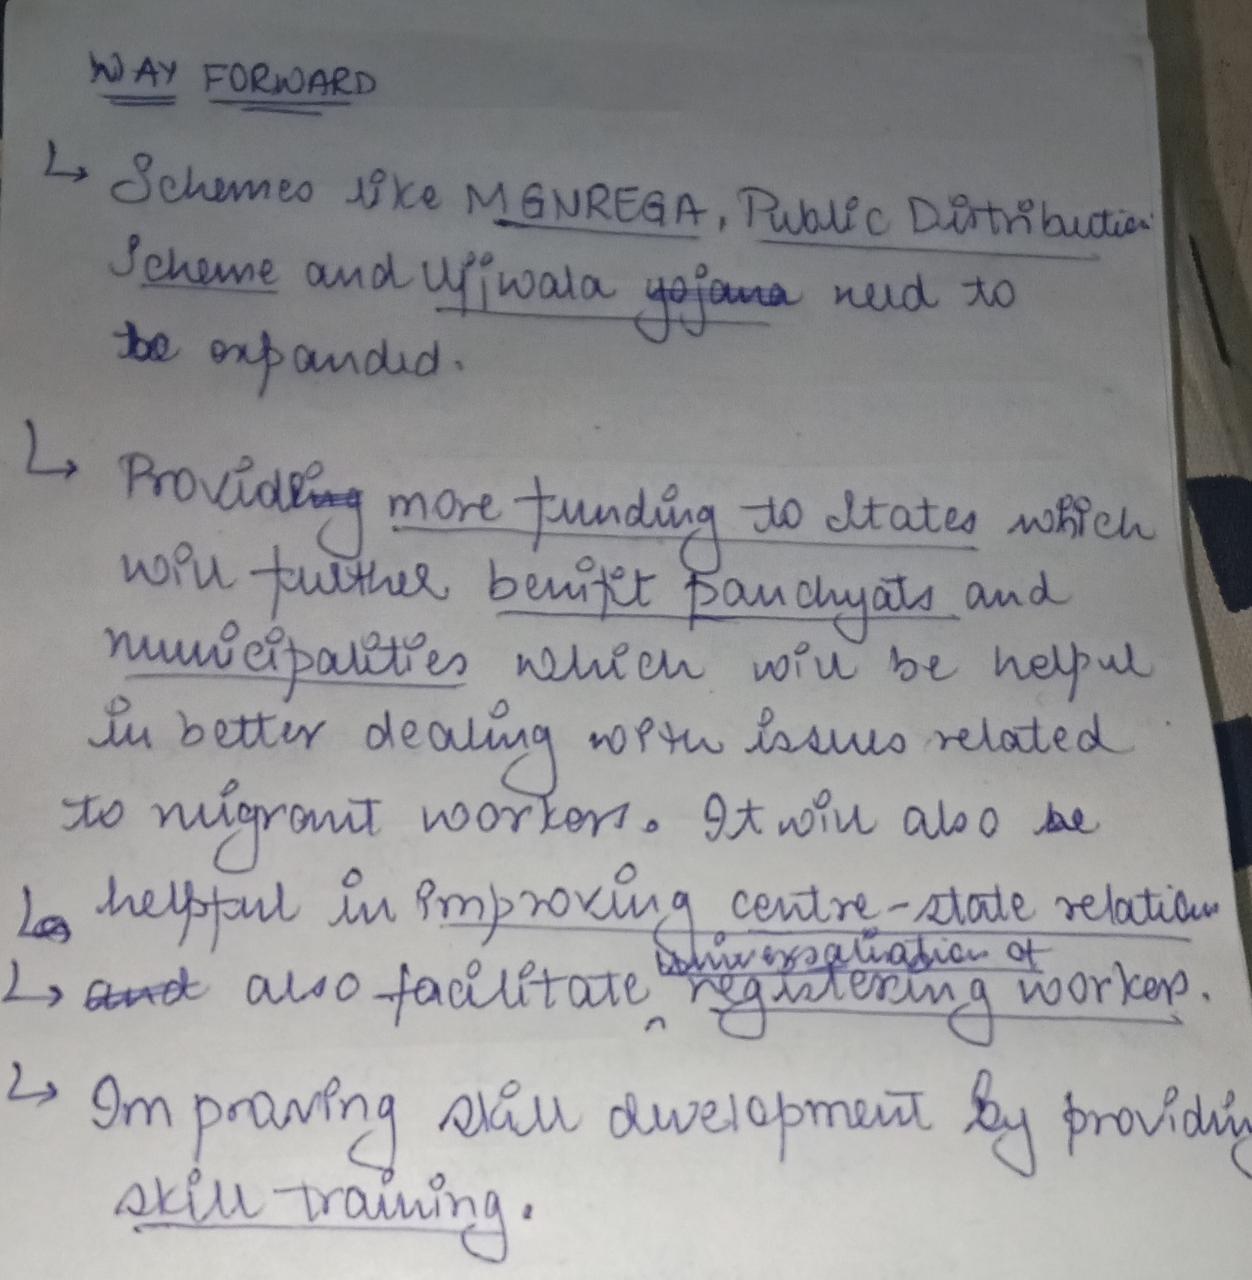 WAY FORWARD
↳ Schemes like MGNREGA, Public Distribution
Scheme and Ujjwala yojana need to
be expanded.
↳ Providing more funding to states which
will further benifit panchyats and
municipalities which will be helpul
in better dealing with issues related
to migrant workers. It will also be
↳ helpful in improving centre-state relation
universaliation of
↳ also facilitate ^ registering workers.
↳ Improving skill development by providing
skill training.